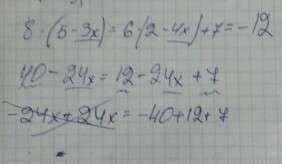 8 · (5-3x) = 6(2-4x)+7=-12
40 - 24x = 12-24x + 7
-24x+24x = -40+12+7